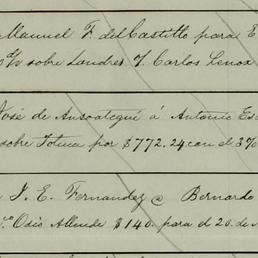 Manuel F. del Castillo para E
sobre Landres J. Carlos Lenox
José de Ansoategui á Antonio Es
sobre Totuca por $772.24 con el 3%
J. E. Fernandez @ Bernardo
Odis Allende $140. para el 20. de